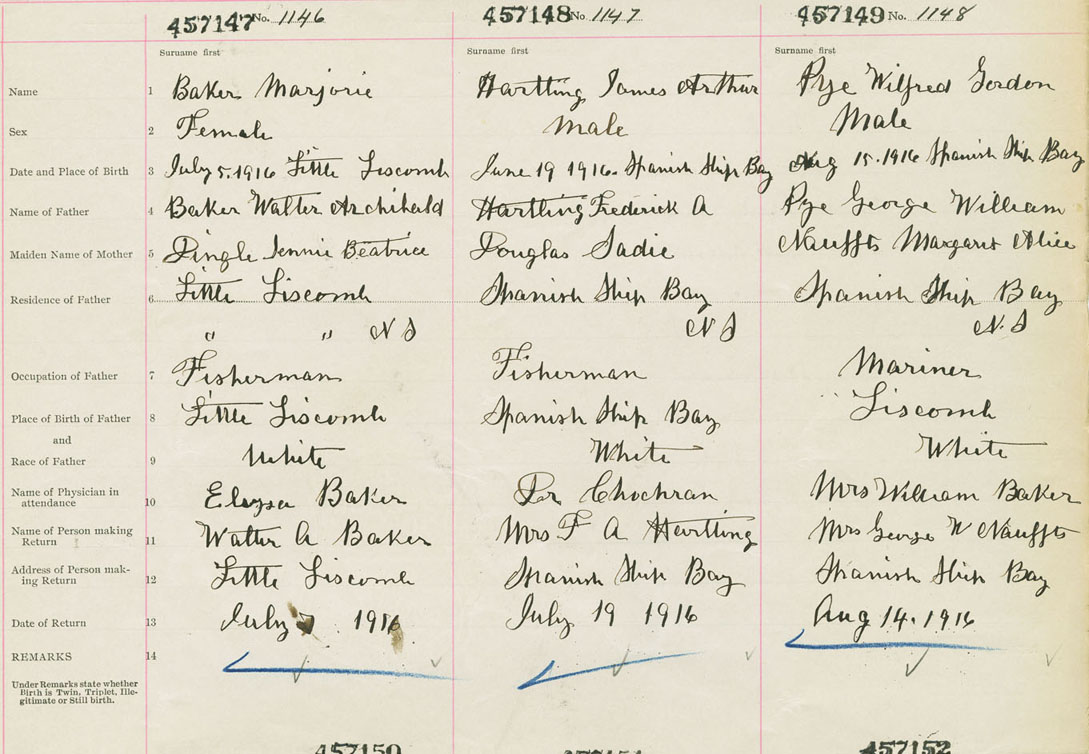 457147 No. 1146 457148 No 1147 457149 No. 1148
Surname first Surname first Surname first
Name 1 Baker Marjorie Hartling James Arthur Pye Wilfred Gordon
Sex 2 Female Male Male
Date and Place of Birth 3 July 5. 1916 Little Liscomb June 19 1916. Spanish Ship Bay Aug 15. 1916 Spanish Ship Bay
Name of Father 4 Baker Walter Archibald Hartling Frederick A Pye George William
Maiden Name of Mother 5 Pingle Jennie Beatrice Douglas Sadie Nauffts Margaret Alice
Residence of Father 6 Little Liscomb Spanish Ship Bay Spanish Ship Bay
" " N S N S N. S
Occupation of Father 7 Fisherman Fisherman Mariner
Place of Birth of Father 8 Little Liscomb Spanish Ship Bay Liscomb
and
Race of Father 9 White White White
Name of Physician in
attendance 10 Baker Dr Chochran Mrs William Baker
Name of Person making
Return 11 Walter A Baker Mrs F A Hartling Mrs George W Nauffts
Address of Person mak-
ing Return 12 Little Liscomb Spanish Ship Bay Spanish Ship Bay
Date of Return 13 July 7 1916 July 19 1916 Aug 14. 1916
REMARKS 14
Under Remarks state whether
Birth is Twin, Triplet, Ille-
gitimate or Still birth.
457150 457151 457152